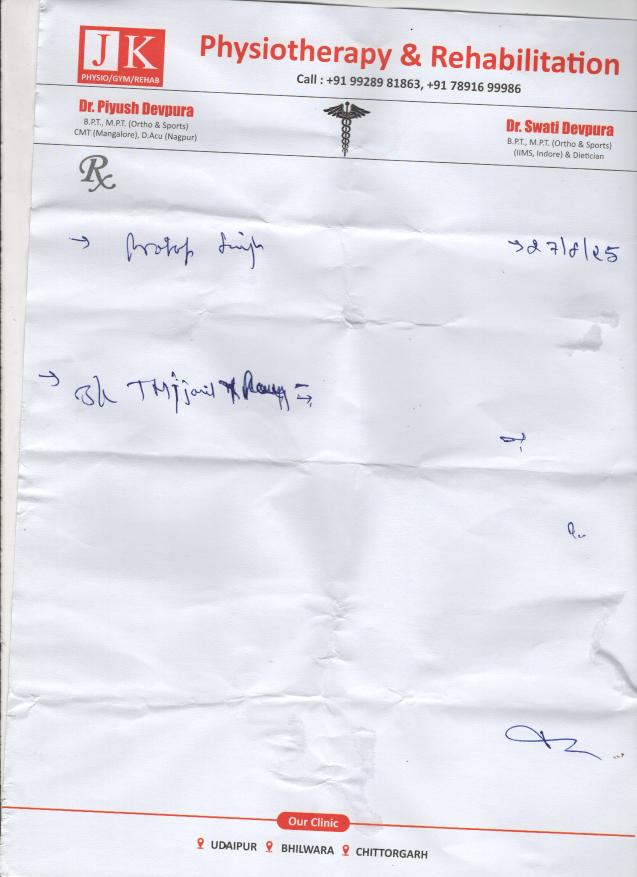 JK
PHYSIO/GYM/REHAB
Physiotherapy & Rehabilitation
Call : +91 99289 81863, +91 78916 99986
Dr. Piyush Devpura
B.P.T., M.P.T. (Ortho & Sports)
CMT (Mangalore), D.Acu (Nagpur)
Dr. Swati Devpura
B.P.T., M.P.T. (Ortho & Sports)
(IIMS, Indore) & Dietician
Rx
→ Singh
→ 27/8/25
→ TMJ
Our Clinic
UDAIPUR BHILWARA CHITTORGARH